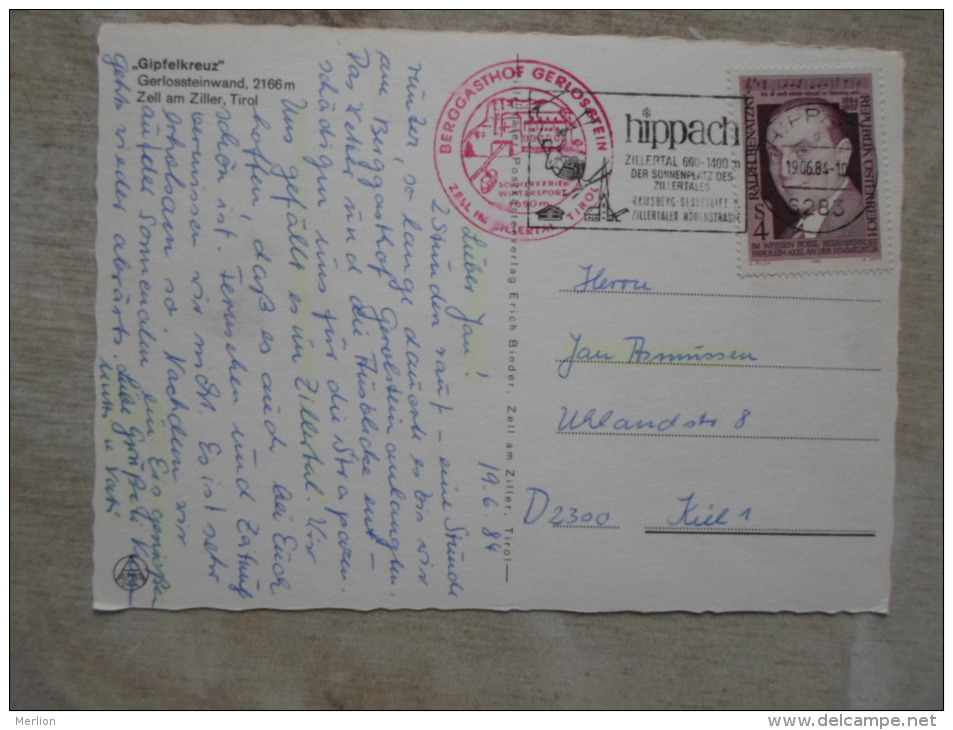 „Gipfelkreuz"
Gerlossteinwand, 2166 m
Zell am Ziller, Tirol
19.6.84
Lieber Jan!
2 Stunden rauf – eine Stunde
runter, so lange dauerte es bis wir
am Berggasthof Gerolstein anlangten.
Das Wetter und die Ausblicke ent-
schädigen uns für die Strapazen.
Uns gefällt es im Zillertal. Wir
hoffen, daß es auch bei Euch
schön ist. Fernsehen und Zeitung
vermissen wir nicht. Es ist sehr
erholsam so. Nachdem wir
auf der Sonnenalm ein Eis
geht's wieder abwärts. Liebe Grüße
Mutti u Vati
Verlag Erich Binder, Zell am Ziller, Tirol
BERGGASTHOF GERLOSSTEIN
SOMMERFERIEN
WINTERSPORT
1650 m
ZELL IM ZILLERTAL TIROL
hippach
ZILLERTAL 600-1400 m
DER SONNENPLATZ DES
ZILLERTALES
RAMSBERG-SESSELLIFT
ZILLERTALER HÖHENSTRASSE
HIPPACH
19.06.84-10
6283
REPUBLIK ÖSTERREICH
RALPH BENATZKY
S 4
IM WEISSEN RÖSSL
Herrn
Jan Asmussen
Uhlandstr 8
D 2300 Kiel 1
Merlion